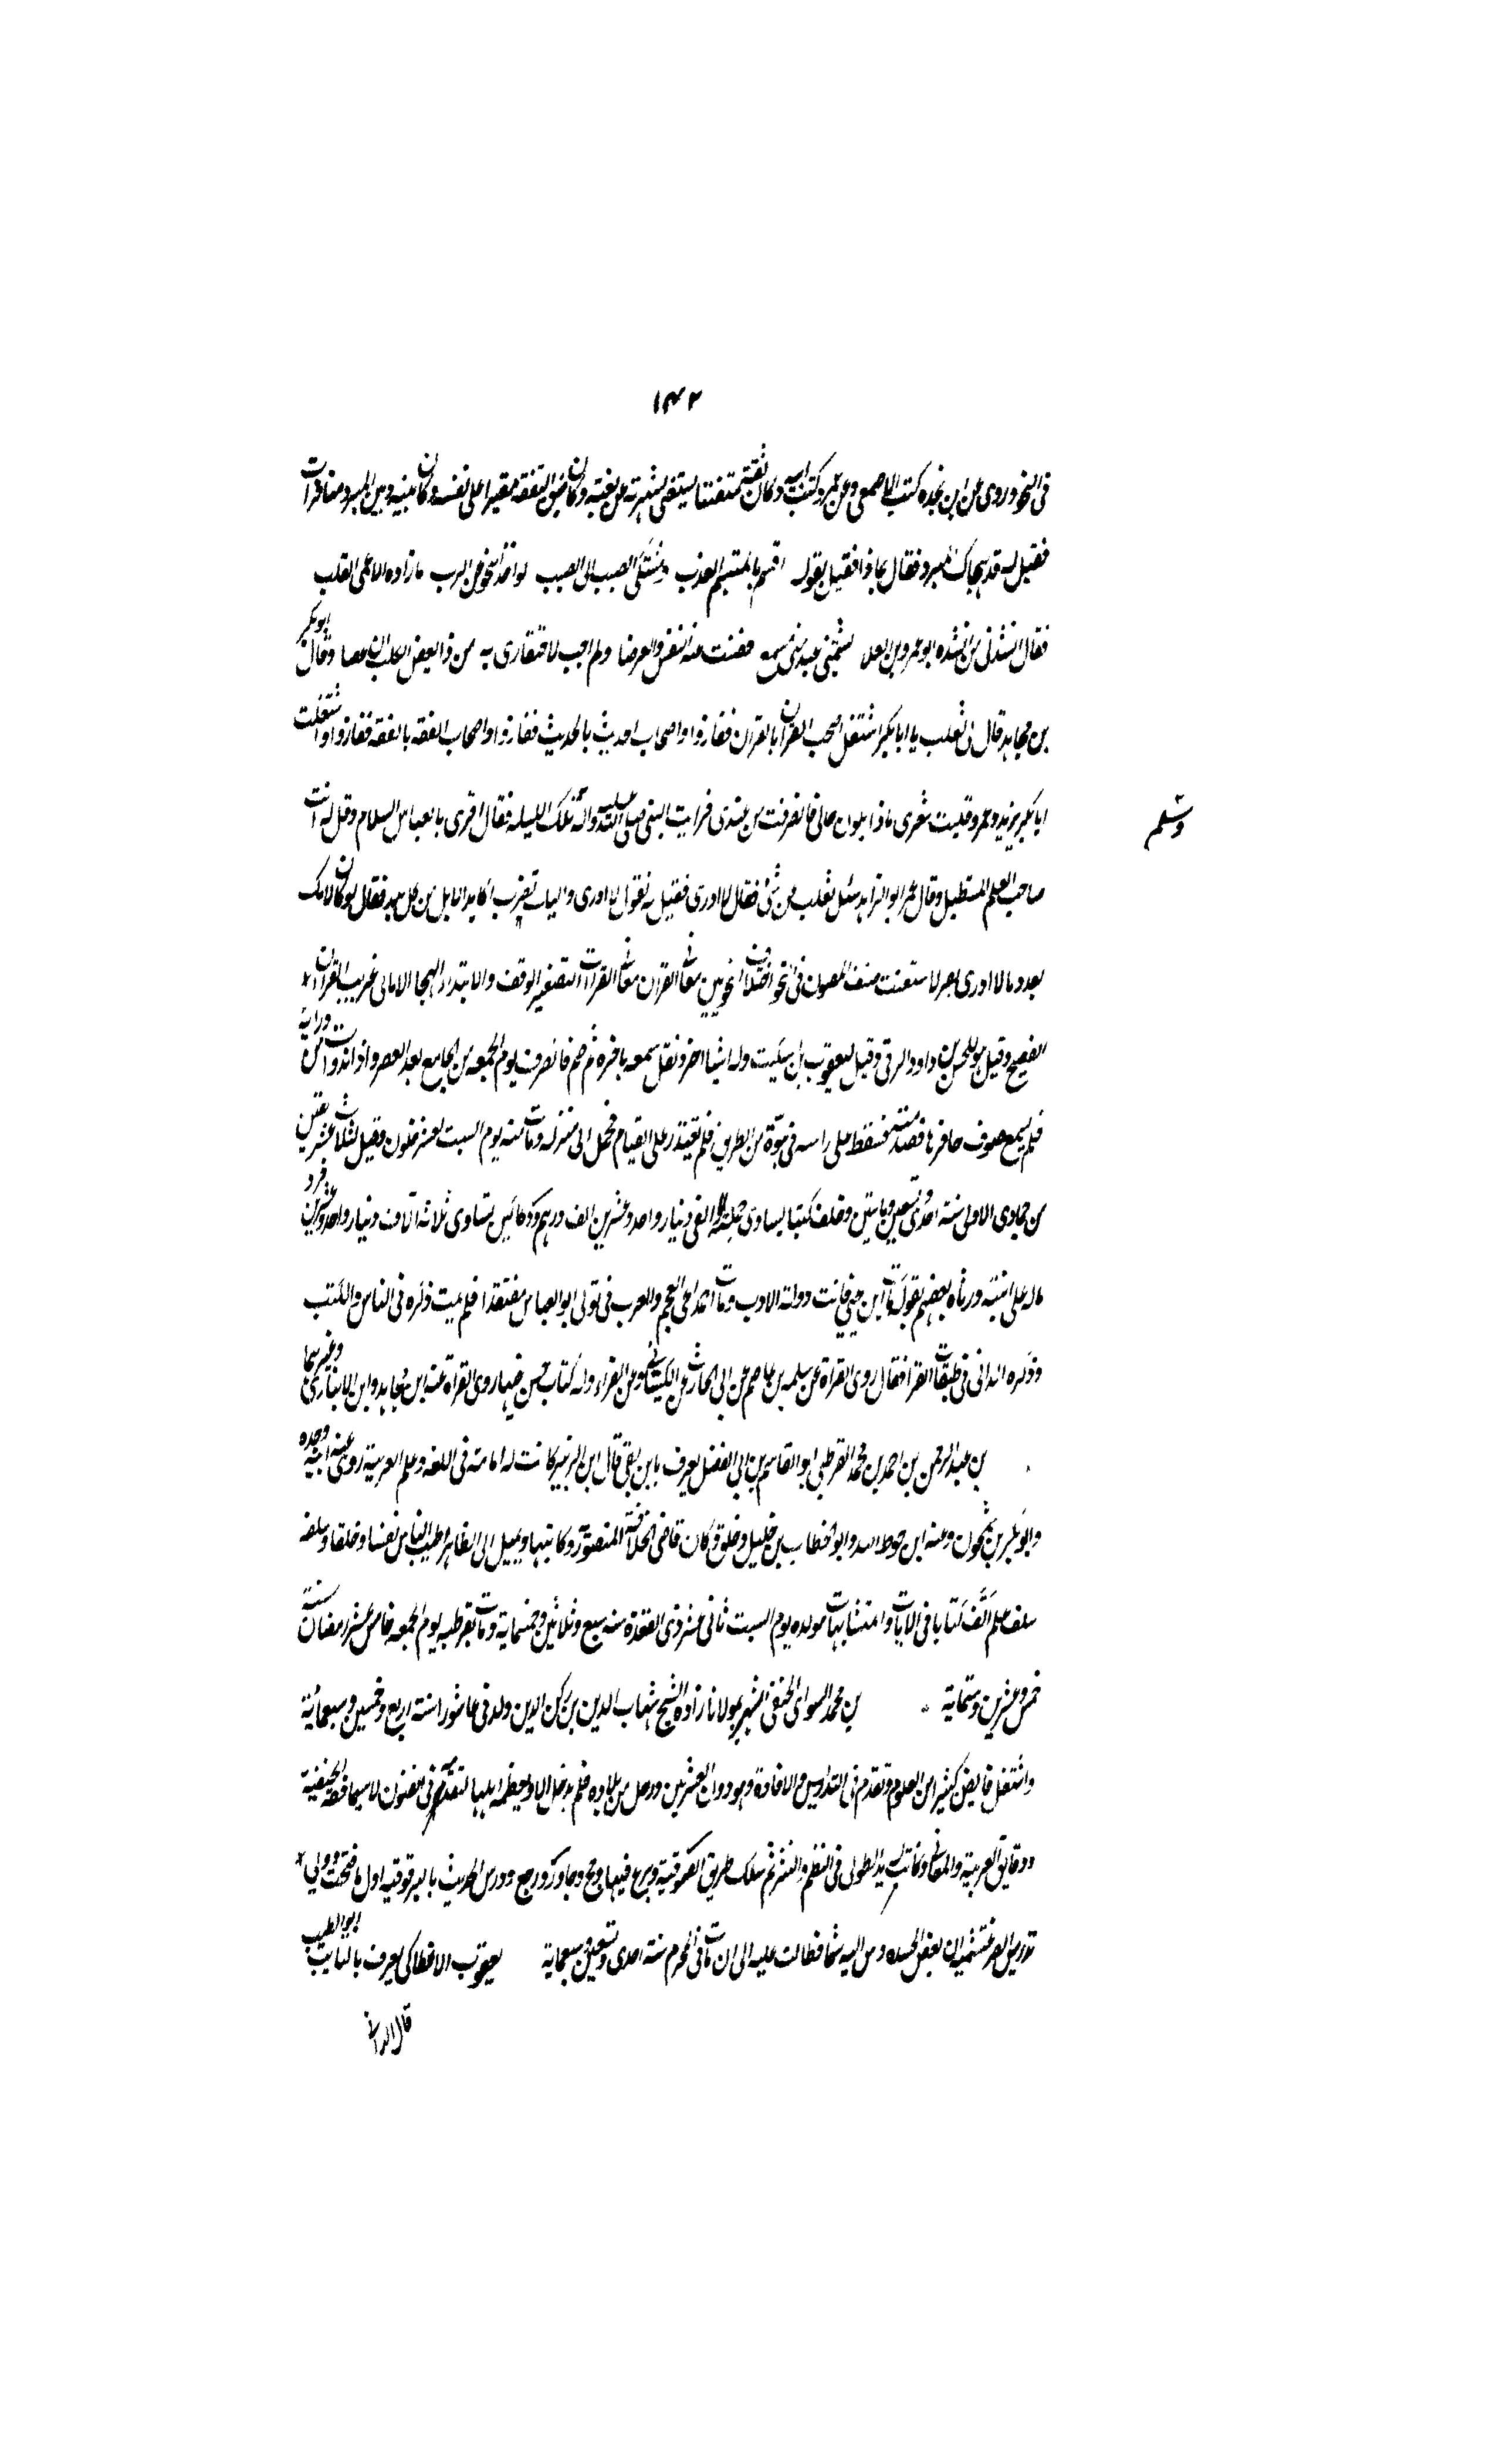 ١٤٢
فى النحو وروى عن ابن نجده كتب الاصمعى وعن عمرو كتب ابيه وكان ثقة متفننا يستغنى بشهرته عن نعته وكان ضيق النفقه مقتيرا على نفسه وكان بينه وبين المبرد منافرات
فقيل له قد هجاك المبرد فقال بماذا فقيل بقوله اقسم بالمبتسم العذب ومشتكى الصب الى الصب لو اخذ النحو عن الرب ما زاده الا عمى القلب
فقال انشدنى من انشده ابو عمرو بن العلا يشتمنى عبد بنى مسمع فصنت عنه النفس والعرضا ولم اجب لاحتقارى به من ذا يعض الكلب ان عضا وقال ابوبكر
بن مجاهد قال لى ثعلب يا ابا بكر اشتغل اصحب القران بالقران ففازوا واصحاب الحديث بالحديث ففازوا واصحاب الفقه بالفقه ففازوا واشتغلت
انا بكر بزيد وعمرو فليت شعرى ماذا يكون حالى فانصرفت من عنده فرايت النبى صلى الله عليه وآله تلك الليله فقال اقرى ابا العباس السلام وقل له انت
وسلم
صاحب العلم المستطيل وقال عمر ابو الزاهد سئل ثعلب عن شئ فقال لا ادرى فقيل له تقول لا ادرى واليك تضرب اكباد الابل من كل بلد فقال لو كان لامك
بعدد ما لا ادرى بعر لاستغنت صنف المصون فى النحو اختلاف النحويين معانى القران معانى القرات التصغير الوقف والابتداء الهجا الامالى غريب القران
الفصيح وقيل هو للحسن بن داود الرقى وقيل ليعقوب بن السكيت وله اشيا اخر وثقل سمعه باخره ثم صم فانصرف يوم الجمعه من الجامع بعد العصر واذا بدواب من ورائه
فلم يسمع صوت حافرها فصدمته فسقط على راسه فى هوة من الطريق فلم يقتدر على القيام فحمل الى منزله ومات منه يوم السبت لعشر خلون وقيل لثلاث عشر بقين
من جمادى الاولى سنة احدى وتسعين وماتين وخلف كتبا يساوى جملة الفى دينار واحد وعشرين الف درهم ودكاكين تساوى ثلاثة آلاف دينار فرد
ماله على ابنته ورثاه بعضهم بقوله مات ابن يحيى فماتت دولة الادب ومات احمد انحى العجم والعرب فى تولى ابو العباس مفتقدا فلم يمت ذكره فى الناس والكتب
وذكره الدانى فى طبقات القرا فقال روى القراة عن سلمه بن عاصم عن ابى الحارث عن الكسائى وعن الفراء وله كتاب حسن فيها روى القراة عنه ابن مجاهد وابن الانبارى وغيرهما
بن عبد الرحمن بن احمد بن محمد القرطبى ابو القاسم بن ابى الفضل يعرف بابن بقى قال ابن الزبير كانت له امامة فى اللغه وعلم العربية روى عن ابيه وجده
وابو بكر بن سمحون وعنه ابن حوط الله وابو الخطاب بن خليل وخلق وكان قاضى الخلافة المنصورة وكاتبها ويميل الى الظاهر اطيب الناس نفسا وخلقا وسلفه
سلف علم الف كتابا فى الايات والمتشابهات مولده يوم السبت ثانى عشر ذى القعدة سنه سبع وثلاثين وخمسماية ومات بقرطبه يوم الجمعه خامس عشر رمضان سنة
خمس وعشرين وستماية بن محمد السراى الحنفى الشهير بمولانا زاده الشيخ شهاب الدين بن ركن الدين ولد فى عاشورا سنة اربع وخمسين وسبعمائية
واشتغل فاتقن كثيرا من العلوم وتقدم فى التدريس والافادة وهو دون العشرين ورحل من بلاده فلم يدخل بلدا الا ويعظمه اهلها لتقدمه فى الفنون لا سيما فقه الحنفية
ودقايق العربية والمعانى وكانت له يد الطولى فى النظم والنثر ثم سلك طريق الصوفية وبرع فيها وحج وجاور ورجع ودرس الحديث بالبرقوقيه اول ما فتحت وولى
تدريس الصرغتمشيه ان بعض الحسده دس اليه سما فطالت عليه الى ان مات فى المحرم سنة احدى وتسعين وسبعماية يعقوب الانطاكى يعرف بالتايب ابو الطيب
قال الدانى